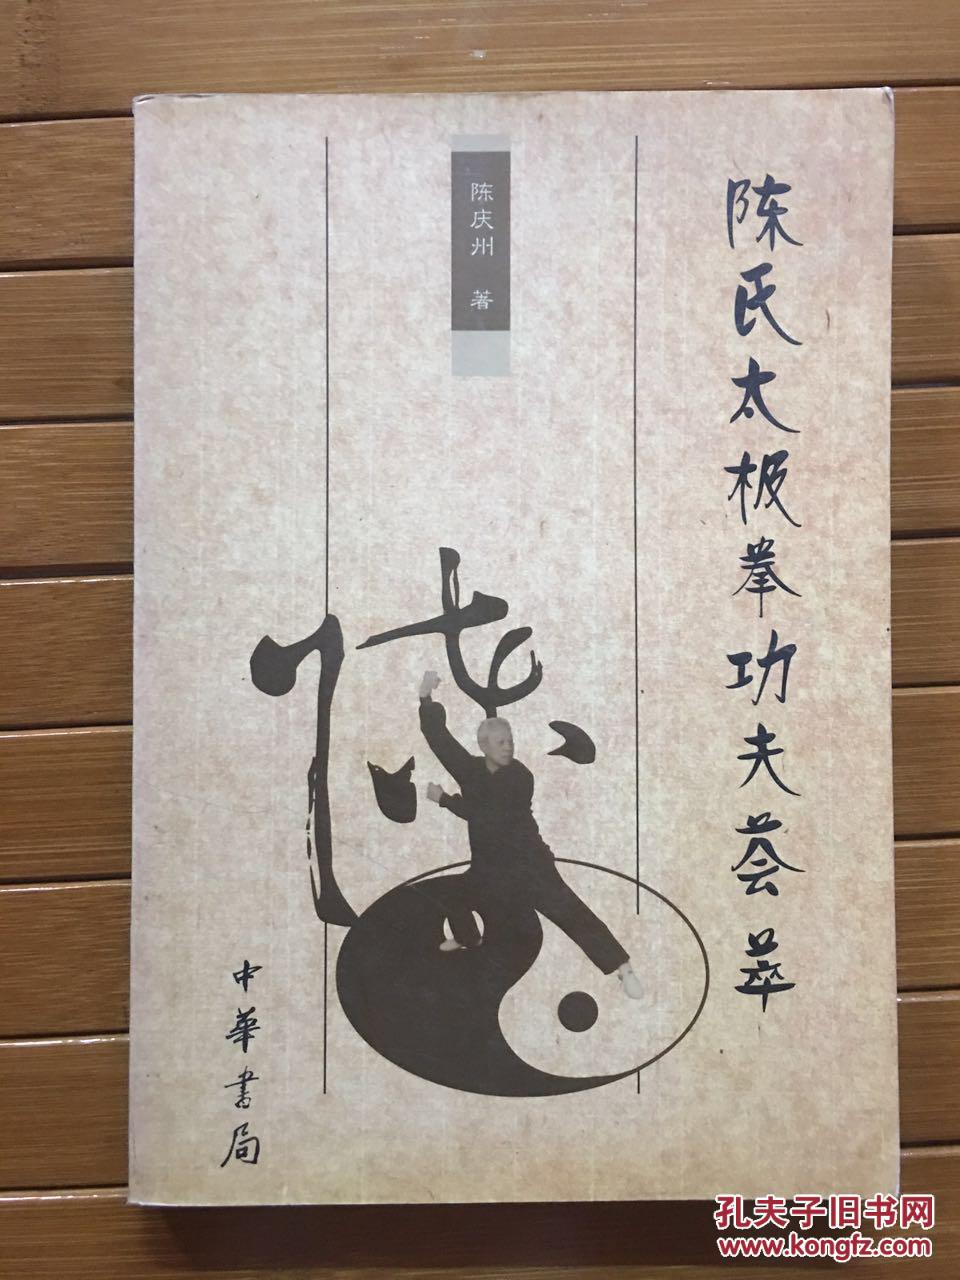 陈氏太极拳功夫荟萃
陈庆州 著
中华书局
孔夫子旧书网
www.kongfz.com